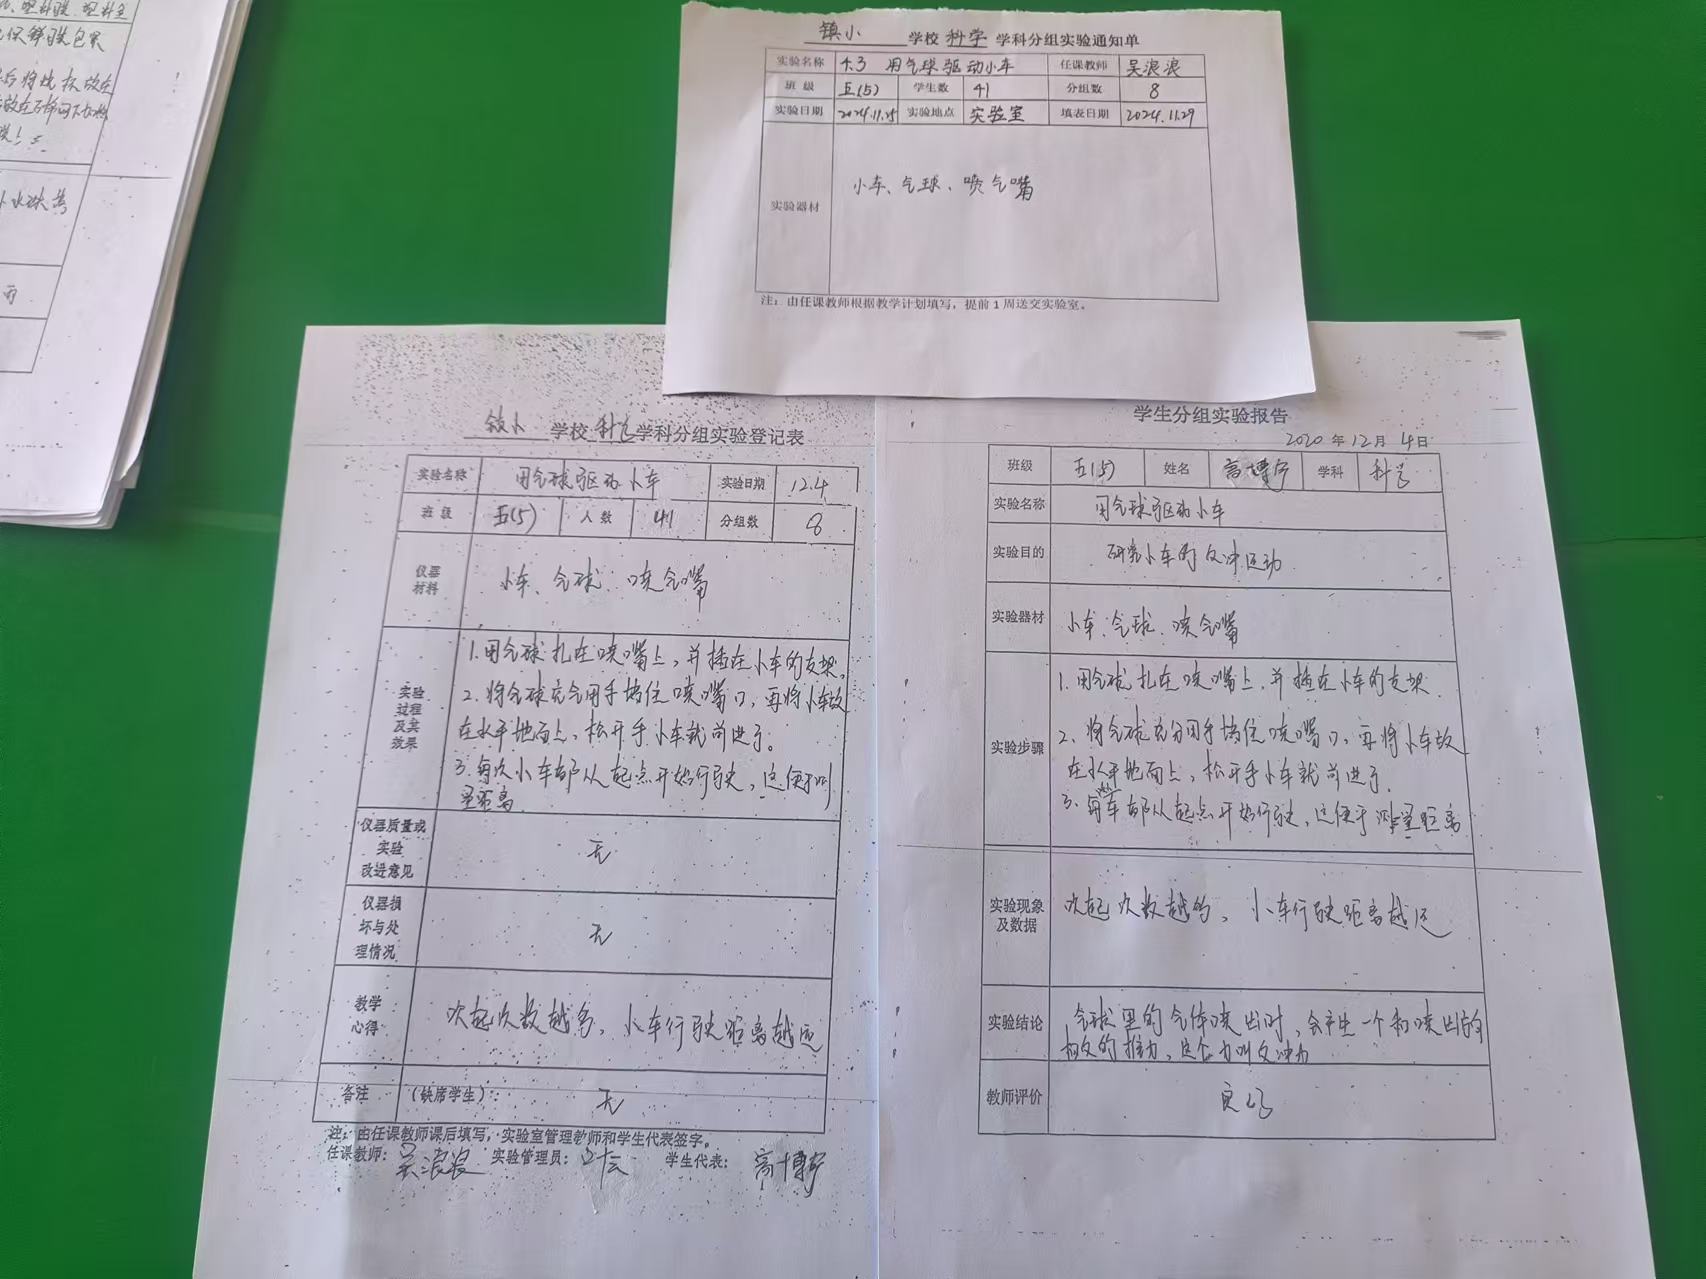 镇小 学校 科学 学科分组实验通知单
实验名称 4.3 用气球驱动小车 任课教师 吴浪浪
班 级 五(5) 学生数 41 分组数 8
实验日期 2024.11.25 实验地点 实验室 填表日期 2024.11.29
实验器材 小车、气球、喷气嘴
注：由任课教师根据教学计划填写，提前1周送交实验室。
镇小 学校 科学 学科分组实验登记表
实验名称 用气球驱动小车 实验日期 12.4
班 级 五(5) 人 数 41 分组数 8
仪器
材料
小车、气球、喷气嘴
实验
过程
及其
效果
1.用气球扎在喷嘴上，并插在小车的支架。
2.将气球充气用手堵住喷嘴口，再将小车放
在水平地面上，松开手小车就前进了。
3.每次小车都从起点开始行驶，这便于
量距离
仪器质量或
实验
改进意见
无
仪器损
坏与处
理情况
无
教学
心得
次数越多，小车行驶距离越远
备注 (缺席学生)： 无
注：由任课教师课后填写，实验室管理教师和学生代表签字。
任课教师： 吴浪浪 实验管理员： 学生代表： 高博宇
学生分组实验报告
2020 年 12 月 4 日
班级 五(5) 姓名 高博宇 学科 科学
实验名称 用气球驱动小车
实验目的 研究小车的反冲运动
实验器材 小车、气球、喷气嘴
实验步骤
1.用气球扎在喷嘴上，并插在小车的支架.
2.将气球充分用手堵住喷嘴口，再将小车放
在水平地面上，松开手小车就前进了.
3.每车都从起点开始行驶，这便于测量距离
实验现象
及数据
次数越多，小车行驶距离越远
实验结论
气球里的气体喷出时，会产生一个和喷出方向
相反的推力，这个力叫反冲力
教师评价 良好